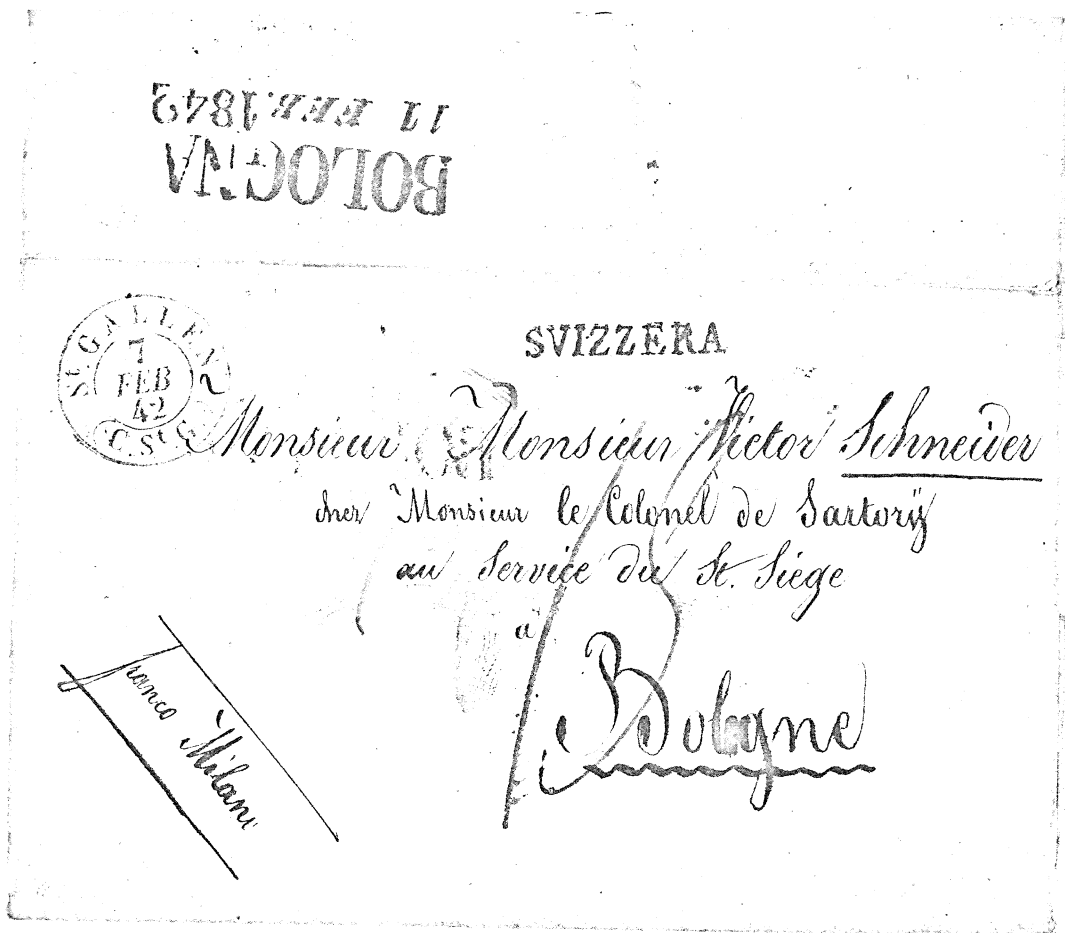 BOLOGNA
11 FEB.1842
St. GALLEN
7
FEB
42
C. St. G.
SVIZZERA
Monsieur Monsieur Victor Schneider
chez Monsieur le Colonel de Sartorÿ
au Service du St. Siége
à
Bologne
franco Milano